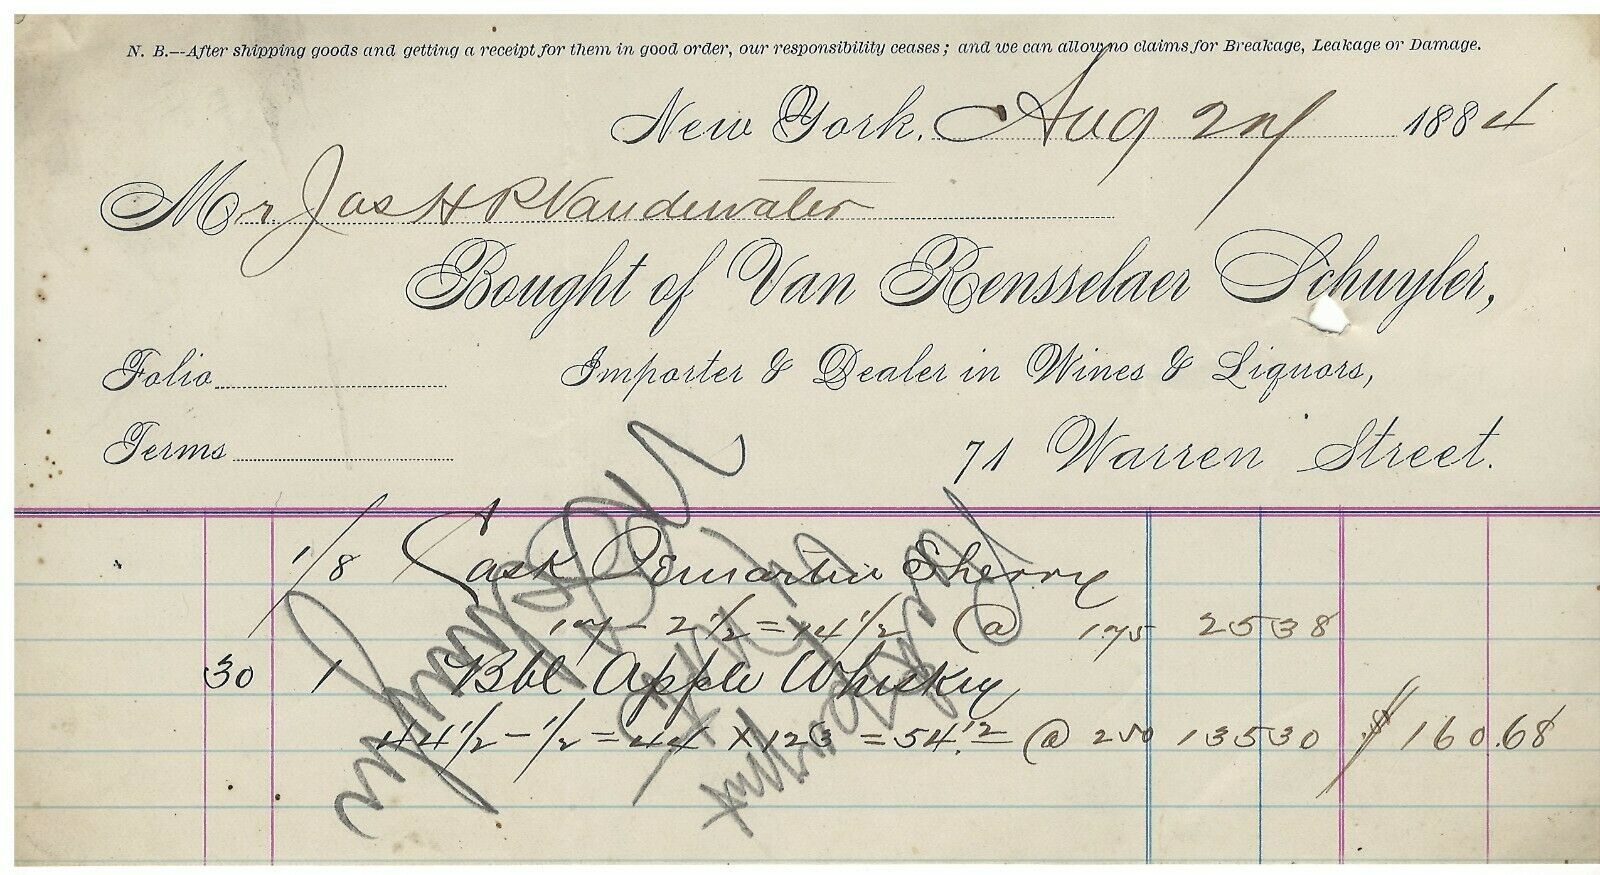 N. B.—After shipping goods and getting a receipt for them in good order, our responsibility ceases; and we can allow no claims for Breakage, Leakage or Damage.
New York, Aug 27 1884
Mr Jas H R Vandewater
Bought of Van Rensselaer Schuyler,
Folio Importer & Dealer in Wines & Liquors,
Terms 71 Warren Street.
1/8 Cask Pemartin Sherry
17 - 2 1/2 = 14 1/2 @ 175 25 38
30 1 Bbl Apple Whiskey
44 1/2 - 1/2 = 44 x 123 = 54.12 @ 250 135 30 $ 160.68